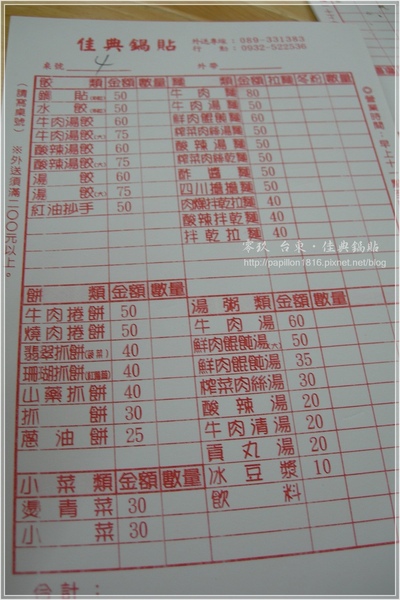 佳典鍋貼
外送專線：089-331383
行動：0932-522536
桌號 4 外帶
(請寫桌號) ※外送須滿二〇〇元以上。
◎營業時間：早上十一
餃類 金額 數量
鍋貼 50
水餃 50
牛肉湯餃 60
牛肉湯餃(大) 75
酸辣湯餃 60
酸辣湯餃(大) 75
湯餃 60
湯餃(大) 75
紅油抄手 50
麵類 金額 拉麵 冬粉 數量
牛肉麵 80
牛肉湯麵 50
鮮肉餛飩麵 60
榨菜肉絲湯麵 50
酸辣湯麵 50
榨菜肉絲乾麵 50
酢醬麵 50
四川擔擔麵 50
肉燥拌乾麵 40
酸辣拌乾麵 40
拌乾拉麵 40
零玖 台東·佳典鍋貼
http://papilion1816.pixnet.net/blog
餅類 金額 數量
牛肉捲餅 50
燒肉捲餅 50
翡翠抓餅(菠菜) 40
珊瑚抓餅(紅蘿蔔) 40
山藥抓餅 40
抓餅 30
蔥油餅 25
湯粥類 金額 數量
牛肉湯 60
鮮肉餛飩湯(大) 50
鮮肉餛飩湯 35
榨菜肉絲湯 30
酸辣湯 20
牛肉清湯 20
貢丸湯 20
冰豆漿 10
飲料
小菜類 金額 數量
燙青菜 30
小菜 30
合計：